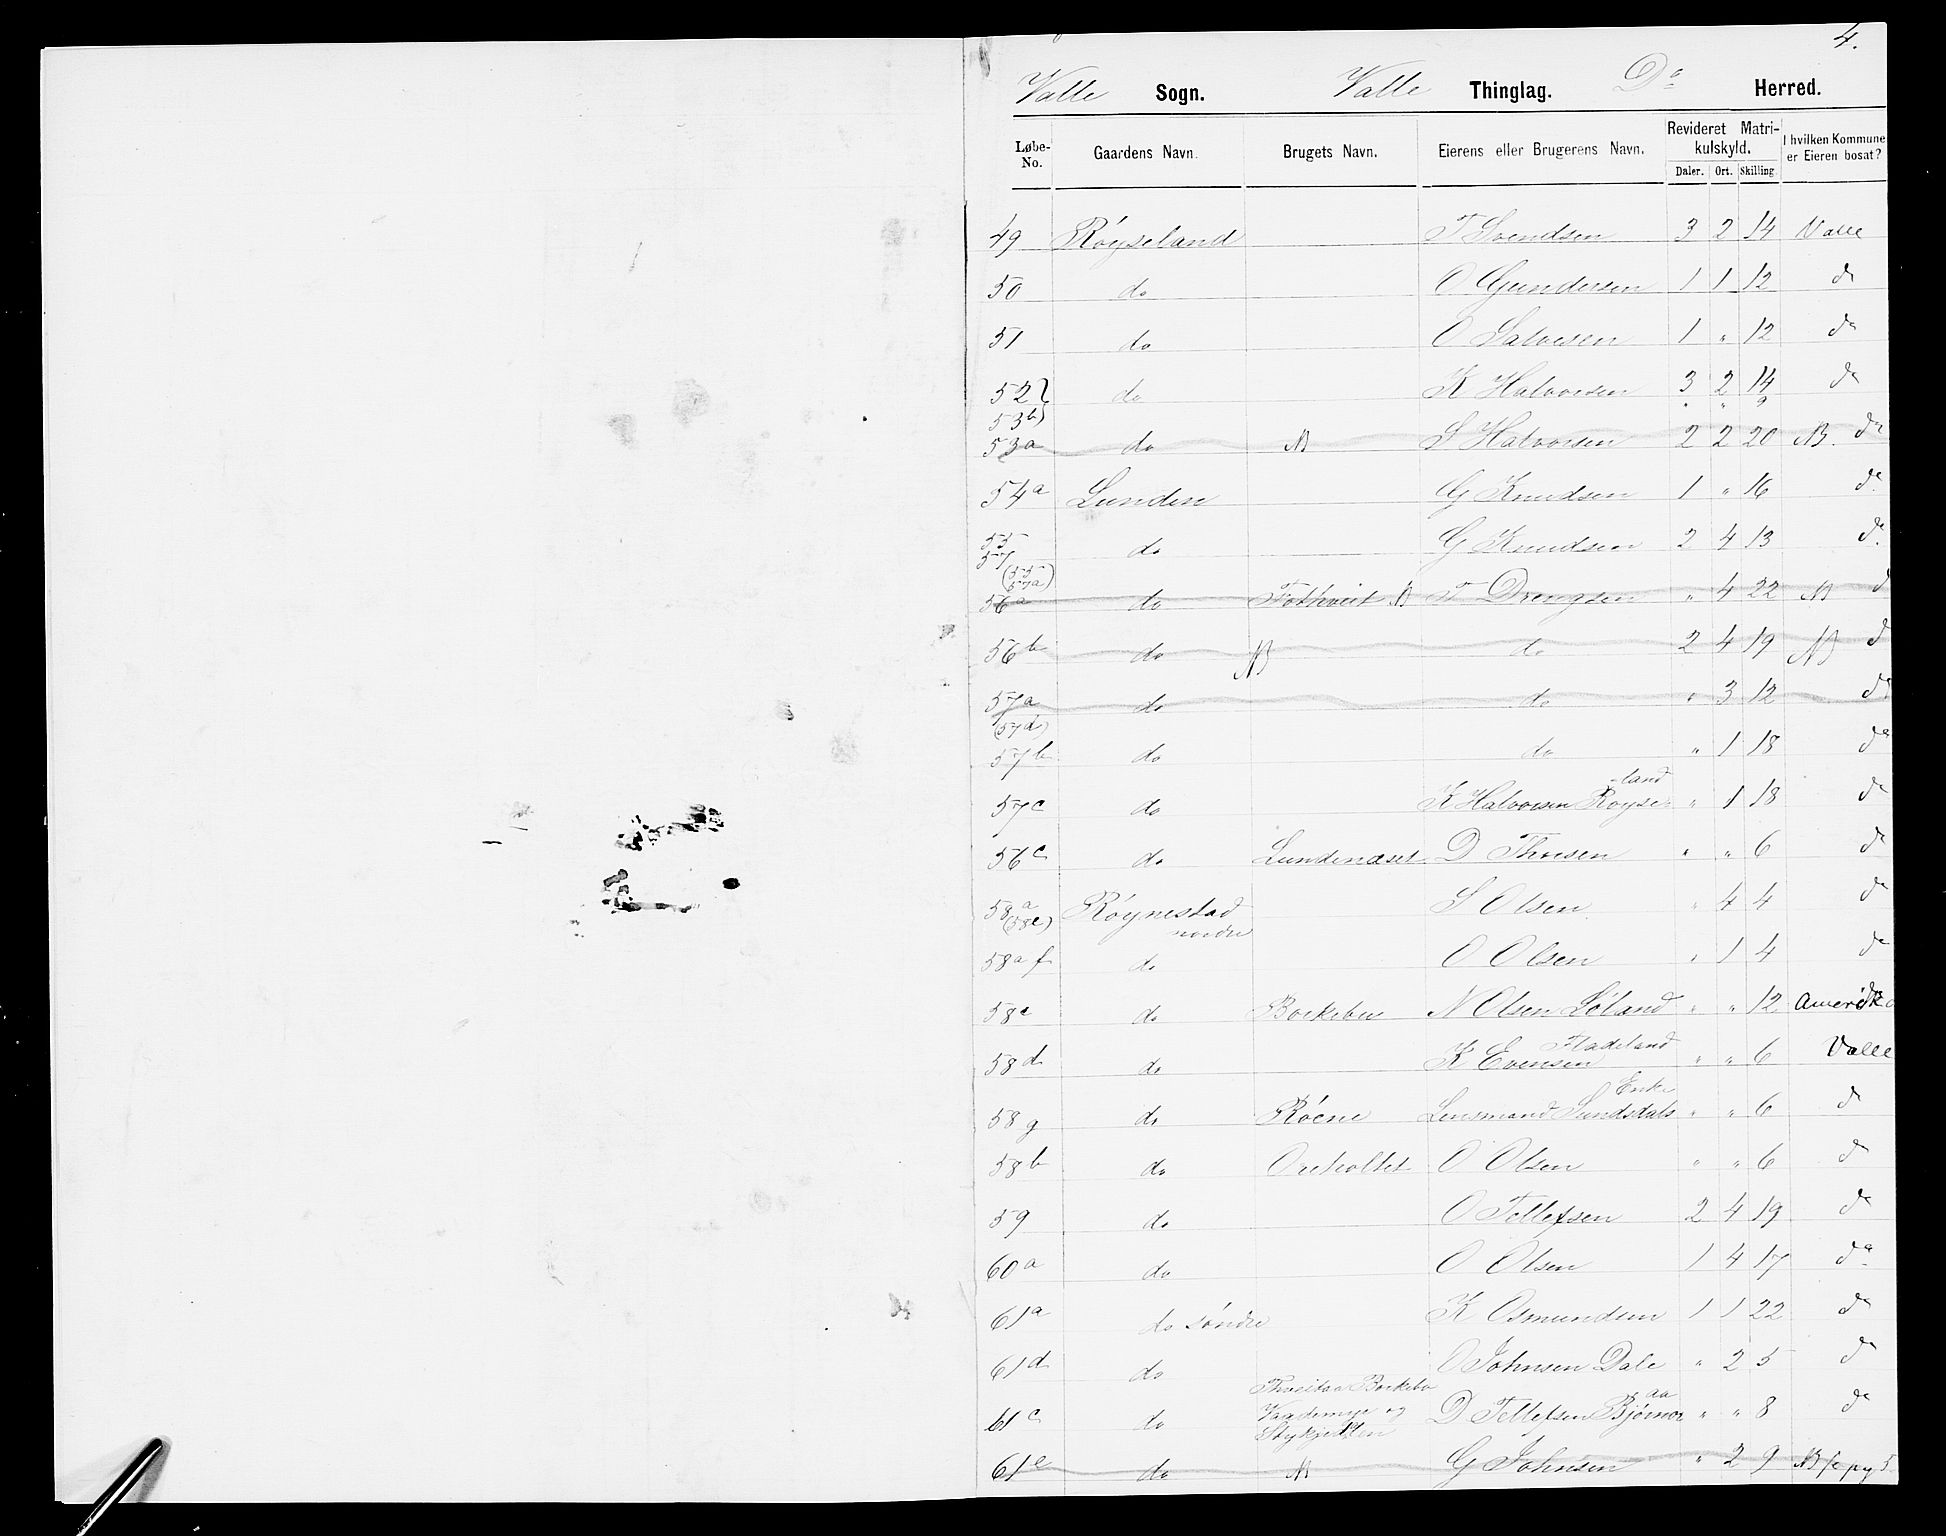 4.
Valle Sogn. Valle Thinglag. Do Herred.
Løbe-No. Gaardens Navn. Brugets Navn. Eierens eller Brugerens Navn. Revideret Matrikulskyld. Daler. Ort. Skilling. I hvilken Kommune er Eieren bosat?
49 Röyseland T Svendsen 3 2 14 Valle
50 do O Gundersen 1 1 12 do
51 do O Salvesen 1 " 12 do
52 do K Halvorsen 3 2 14 do
53b) " " 9
53a do NB S Halvorsen 2 2 20 NB. do
54a Lunden G Knudsen 1 " 16 do
55 57 do G Knudsen 2 4 13 do
(55 57a)
56a do Fothveit NB T Drengsen " 4 22 NB d
56b do NB do 2 4 19 NB d
57a do do " 3 12 do
(57d)
57b do do " 1 18 do
57c do K Halvorsen Röyseland " 1 18 do
56c do Lundenæset D Thorsen " " 6 do
58a (58e) Röynestad nordre S Olsen " 4 4 do
58a f do O Olsen " 1 4 do
58c do Borkebu N Olsen Löland " " 12 Amerika
58d do K Evensen Fladeland " " 6 Valle
58g do Röene Lensmand Sundsdals Enke " " 6 do
58b do Oreholtet O Olsen " " 6 do
59 do O Tellefsen 2 4 19 do
60a do O Olsen 1 4 17 do
61a do söndre K Osmundsen 1 1 22 do
61d do O Johnsen Dale " 2 5 do
61c do Borkebo og D Tellefsen Bjørnaa " " 8 do
61e do NB G Johnsen " 2 9 NB